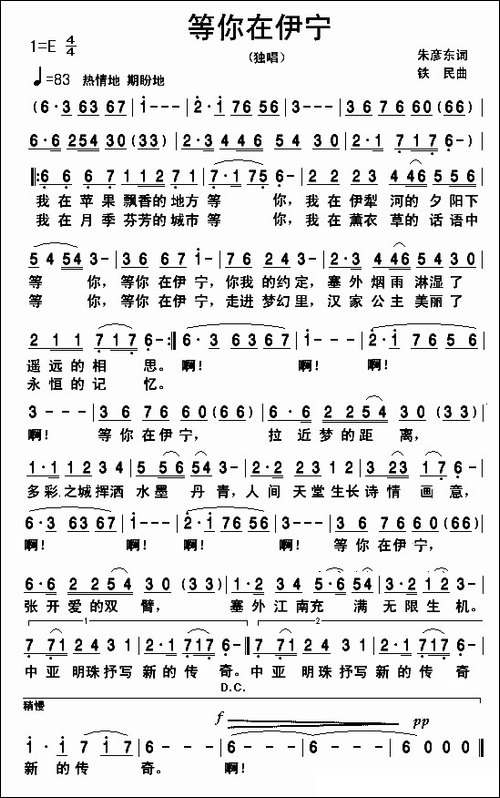 等你在伊宁
1=E 4/4
（独唱）
朱彦东词
铁 民曲
♩=83 热情地 期盼地
(6·3 63 67 | i--- | 2·i 76 56 | 3--- | 6·3 63 67 | i--- |
6·6 254 30 (33) | 2·1 717 6-) |
我在苹果飘香的地方等 你，我在伊犁 河的夕阳下
我在月季芬芳的城市等 你，我在薰衣 草的话语中
5 4 54 3- | 36 67 i- | 76 243- | 2·2 446 556 |
等 你，等你在伊宁，你我的约定，塞外烟雨淋湿了
等 你，等你在伊宁，走进梦幻里，汉家公主美丽了
2 1 1 717 6- :| 6·3 6367 | i--- | i--- | 2·i 7656 |
遥远的相 思。啊！ 啊！ 啊！
永恒的记 忆。
3--- | 36 76 0 (66) | 6·6 2254 30 (33) |
啊！ 等你在伊宁， 拉近梦的距 离，
1·1 12 34 | 5 56 54 3- | 2·2 23 12 | 3 23 17 6- |
多彩之城挥洒 水墨 丹青，人间 天堂生长诗情 画意，
6·3 63 67 | i--- | 2·i 76 56 | 3--- | 36 76 0 (66) |
啊！ 啊！ 啊！ 等你在伊宁，
6·6 2 2 54 30 (33) | 12 34 5·6 54 | 3·2 12 3- |
张开爱的双 臂， 塞外江南充 满 无限生机。
1 2
7 71 2431 | 2·1 717 6- | 7 71 2431 | 2·1 717 6- |
中亚 明珠抒写 新的传 奇。中亚 明珠抒写 新的传 奇
D.C.
稍慢
f pp
1·1 17 17 | 6--- | 6--- | 6--- | 6000 ‖
新 的传 奇。 啊！